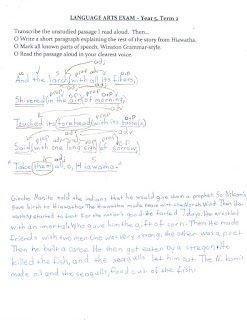 LANGUAGE ARTS EXAM – Year 5, Term 2
Transcribe the unstudied passage I read aloud. Then...
O Write a short paragraph explaining the rest of the story from Hiawatha.
O Mark all known parts of speech, Winston Grammar-style.
O Read the passage aloud in your clearest voice.
And the larch with all its fibres,
Shivered in the air of morning,
Touched its forehead with its tassels,
Said, with one long sigh of sorrow,
"Take them all, O, Hiawatha."
Gitche Manito told the indians that he would give them a prophet. So
gave birth to Hiawatha. The Hiawatha made peace with the North Wind. Then
started to fast for the nation's good. He fasted 7 days. He wrestled
with an immortal who gave him the gift of corn. Then he made
friends with two men. One was very strong, the other was a poet
Then he built a canoe. He then got eaten by a sturgeon. He
killed the fish, and the seagulls let him out. The
made oil and the seagulls, food out of the fish.